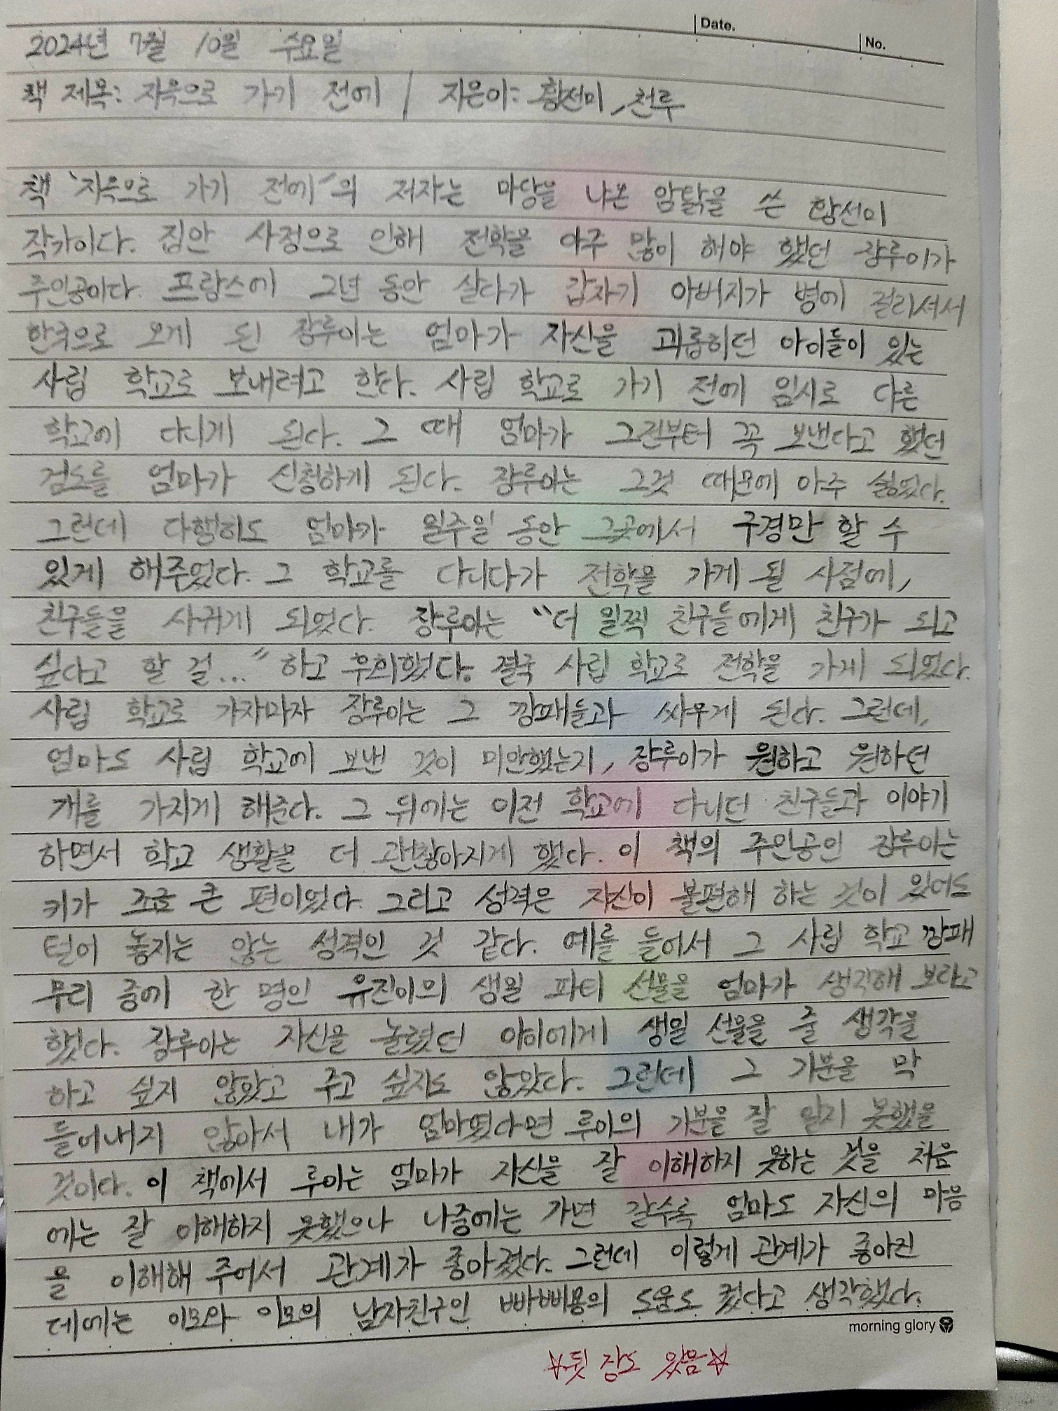 Date.
No.
2024년 7월 10일 수요일
책 제목: 지옥으로 가기 전에 / 지은이: 황선미, 천루
책 "지옥으로 가기 전에"의 저자는 마당을 나온 암탉을 쓴 황선미
작가이다. 집안 사정으로 인해 전학을 아주 많이 해야 했던 장루이가
주인공이다. 프랑스에 2년 동안 살다가 갑자기 아버지가 병에 걸리셔서
한국으로 오게 된 장루이는 엄마가 자신을 괴롭히던 아이들이 있는
사립 학교로 보내려고 한다. 사립 학교로 가기 전에 임시로 다른
학교에 다니게 된다. 그 때 엄마가 그전부터 꼭 보낸다고 했던
검도를 엄마가 신청하게 된다. 장루이는 그것 때문에 아주 싫었다.
그런데 다행히도 엄마가 일주일 동안 그곳에서 구경만 할 수
있게 해주었다. 그 학교를 다니다가 전학을 가게 될 시점에,
친구들을 사귀게 되었다. 장루이는 "더 일찍 친구들에게 친구가 되고
싶다고 할 걸..." 하고 후회했다. 결국 사립 학교로 전학을 가게 되었다.
사립 학교로 가자마자 장루이는 그 깡패들과 싸우게 된다. 그런데,
엄마도 사립 학교에 보낸 것이 미안했는지, 장루이가 원하고 원하던
개를 가지게 해준다. 그 뒤에는 이전 학교에 다니던 친구들과 이야기
하면서 학교 생활을 더 괜찮아지게 했다. 이 책의 주인공인 장루이는
키가 조금 큰 편이었다. 그리고 성격은 자신이 불편해 하는 것이 있어도
털이 놓지는 않는 성격인 것 같다. 예를 들어서 그 사립 학교 깡패
무리 중에 한 명인 유진이의 생일 파티 선물을 엄마가 생각해 보라고
했다. 장루이는 자신을 놀렸던 아이에게 생일 선물을 줄 생각을
하고 싶지 않았고 주고 싶지도 않았다. 그런데 그 기분을 막
들어내지 않아서 내가 엄마였다면 루이의 기분을 잘 알지 못했을
것이다. 이 책에서 루이는 엄마가 자신을 잘 이해하지 못하는 것을 처음
에는 잘 이해하지 못했으나 나중에는 가면 갈수록 엄마도 자신의 마음
을 이해해 주어서 관계가 좋아졌다. 그런데 이렇게 관계가 좋아진
데에는 이모와 이모의 남자친구인 빠삐용의 도움도 컸다고 생각했다.
morning glory